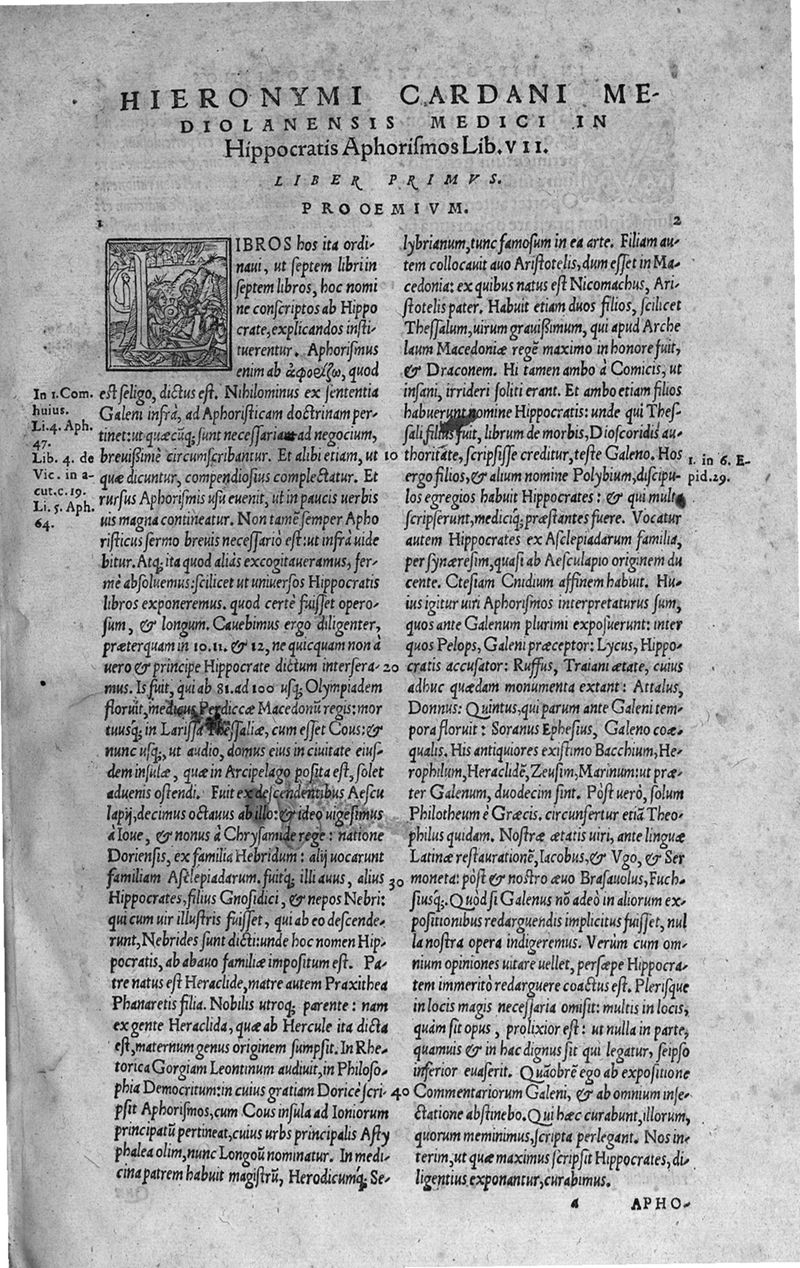 HIERONYMI CARDANI ME-
DIOLANENSIS MEDICI IN
Hippocratis Aphorismos Lib. VII.
LIBER PRIMVS.
PROOEMIVM.
1
LIBROS hos ita ordi-
naui, ut septem libri in
septem libros, hoc nomi
ne conscriptos ab Hippo
crate, explicandos insti-
tuerentur. Aphorismus
enim ab ἀφορίζω, quod
est seligo, dictus est. Nihilominus ex sententia
Galeni infrà, ad Aphoristicam doctrinam per-
tinet: ut quæcūq; sunt necessaria ad negocium,
breuißimè circumscribantur. Et alibi etiam, ut
quæ dicuntur, compendiosius complectatur. Et
rursus Aphorismis usu euenit, ut in paucis uerbis
uis magna contineatur. Non tamē semper Apho
risticus sermo breuis necessariò est: ut infrà uide
bitur. Atq; ita quod aliàs excogitaueramus, fer-
mè absoluemus: scilicet ut uniuersos Hippocratis
libros exponeremus. quod certè fuisset opero-
sum, & longum. Cauebimus ergo diligenter,
præterquam in 10. 11. & 12, ne quicquam non à
uero & principe Hippocrate dictum intersera-
mus. Is fuit, qui ab 81. ad 100 usq; Olympiadem
floruit, medicus Perdiccæ Macedonū regis: mor
tuusq; in Larissa Thessaliæ, cum esset Cous: &
nunc usq;, ut audio, domus eius in ciuitate eius-
dem insulæ, quæ in Arcipelago posita est, solet
aduenis ostendi. Fuit ex descendentibus Aescu
lapij, decimus octauus ab illo: & ideo uigesimus
à Ioue, & nonus à Chrysamide rege: natione
Doriensis, ex familia Hebridum: alij uocarunt
familiam Asclepiadarum. fuitq; illi auus, alius
Hippocrates, filius Gnosidici, & nepos Nebri:
qui cum uir illustris fuisset, qui ab eo descende-
runt, Nebrides sunt dicti: unde hoc nomen Hip-
pocratis, ab abauo familiæ impositum est. Pa-
tre natus est Heraclide, matre autem Praxithea
Phanaretis filia. Nobilis utroq; parente: nam
ex gente Heraclida, quæ ab Hercule ita dicta
est, maternum genus originem sumpsit. In Rhe-
torica Gorgiam Leontinum audiuit, in Philoso-
phia Democritum: in cuius gratiam Doricè scri-
psit Aphorismos, cum Cous insula ad Ioniorum
principatū pertineat, cuius urbs principalis Asty
phalea olim, nunc Longou nominatur. In medi-
cina patrem habuit magistrū, Herodicumq; Se-
In 1. Com.
huius.
Li. 4. Aph.
47.
Lib. 4. de
Vic. in a-
cut. c. 19.
Li. 5. Aph.
64.
10
20
30
40
2
lybrianum, tunc famosum in ea arte. Filiam au-
tem collocauit auo Aristotelis, dum esset in Ma-
cedonia: ex quibus natus est Nicomachus, Ari-
stotelis pater. Habuit etiam duos filios, scilicet
Thessalum, uirum grauißimum, qui apud Arche
laum Macedoniæ regē maximo in honore fuit,
& Draconem. Hi tamen ambo à Comicis, ut
insani, irrideri soliti erant. Et ambo etiam filios
habuerunt nomine Hippocratis: unde qui Thes-
sali filius fuit, librum de morbis, Dioscoridis au-
thoritate, scripsisse creditur, teste Galeno. Hos
ergo filios, & alium nomine Polybium, discipu-
los egregios habuit Hippocrates: & qui multa
scripserunt, mediciq; præstantes fuere. Vocatur
autem Hippocrates ex Asclepiadarum familia,
per synæresim, quasi ab Aesculapio originem du
cente. Ctesiam Cnidium affinem habuit. Hu-
ius igitur uiri Aphorismos interpretaturus sum,
quos ante Galenum plurimi exposuerunt: inter
quos Pelops, Galeni præceptor: Lycus, Hippo-
cratis accusator: Ruffus, Traiani ætate, cuius
adhuc quædam monumenta extant: Attalus,
Donnus: Quintus, qui parum ante Galeni tem-
pora floruit: Soranus Ephesius, Galeno coæ-
qualis. His antiquiores existimo Bacchium, He-
rophilum, Heraclidē, Zeusim, Marinum: ut præ-
ter Galenum, duodecim sint. Pòst uerò, solum
Philotheum è Græcis. circunfertur etiā Theo-
philus quidam. Nostræ ætatis uiri, ante linguæ
Latinæ restaurationē, Iacobus, & Vgo, & Ser
moneta: pòst & nostro æuo Brasauolus, Fuch-
siusq;. Quòd si Galenus nō adeò in aliorum ex-
positionibus redarguendis implicitus fuisset, nul
la nostra opera indigeremus. Verùm cum om-
nium opiniones uitare uellet, persæpe Hippocra-
tem immeritò redarguere coactus est. Plerisque
in locis magis necessaria omisit: multis in locis,
quàm sit opus, prolixior est: ut nulla in parte,
quamuis & in hac dignus sit qui legatur, seipso
inferior euaserit. Quāobrē ego ab expositione
Commentariorum Galeni, & ab omnium inse-
ctatione abstinebo. Qui hæc curabunt, illorum,
quorum meminimus, scripta perlegant. Nos in-
terim, ut quæ maximus scripsit Hippocrates, di-
ligentius exponantur, curabimus.
1. in 6. E-
pid. 29.
a
APHO-